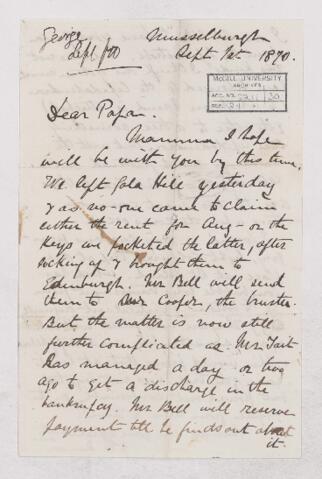 George
Sept 1/70
Musselburgh
Sept. 1st 1870.
McGILL UNIVERSITY
ARCHIVES
ACC. NO.
REF.
Dear Papa.
Mamma I hope
will be with you by this time.
We left Gala Hill yesterday
& as no-one came to claim
either the rent for Aug - or the
keys we pocketed the latter, after
locking up & brought them to
Edinburgh. Mr Bell will send
them to Cooper, the trustee.
But the matter is now still
further complicated as Mr Tait
has managed a day or two
ago to get a discharge in the
bankruptcy. Mr Bell will reserve
payment till he finds out about
it.